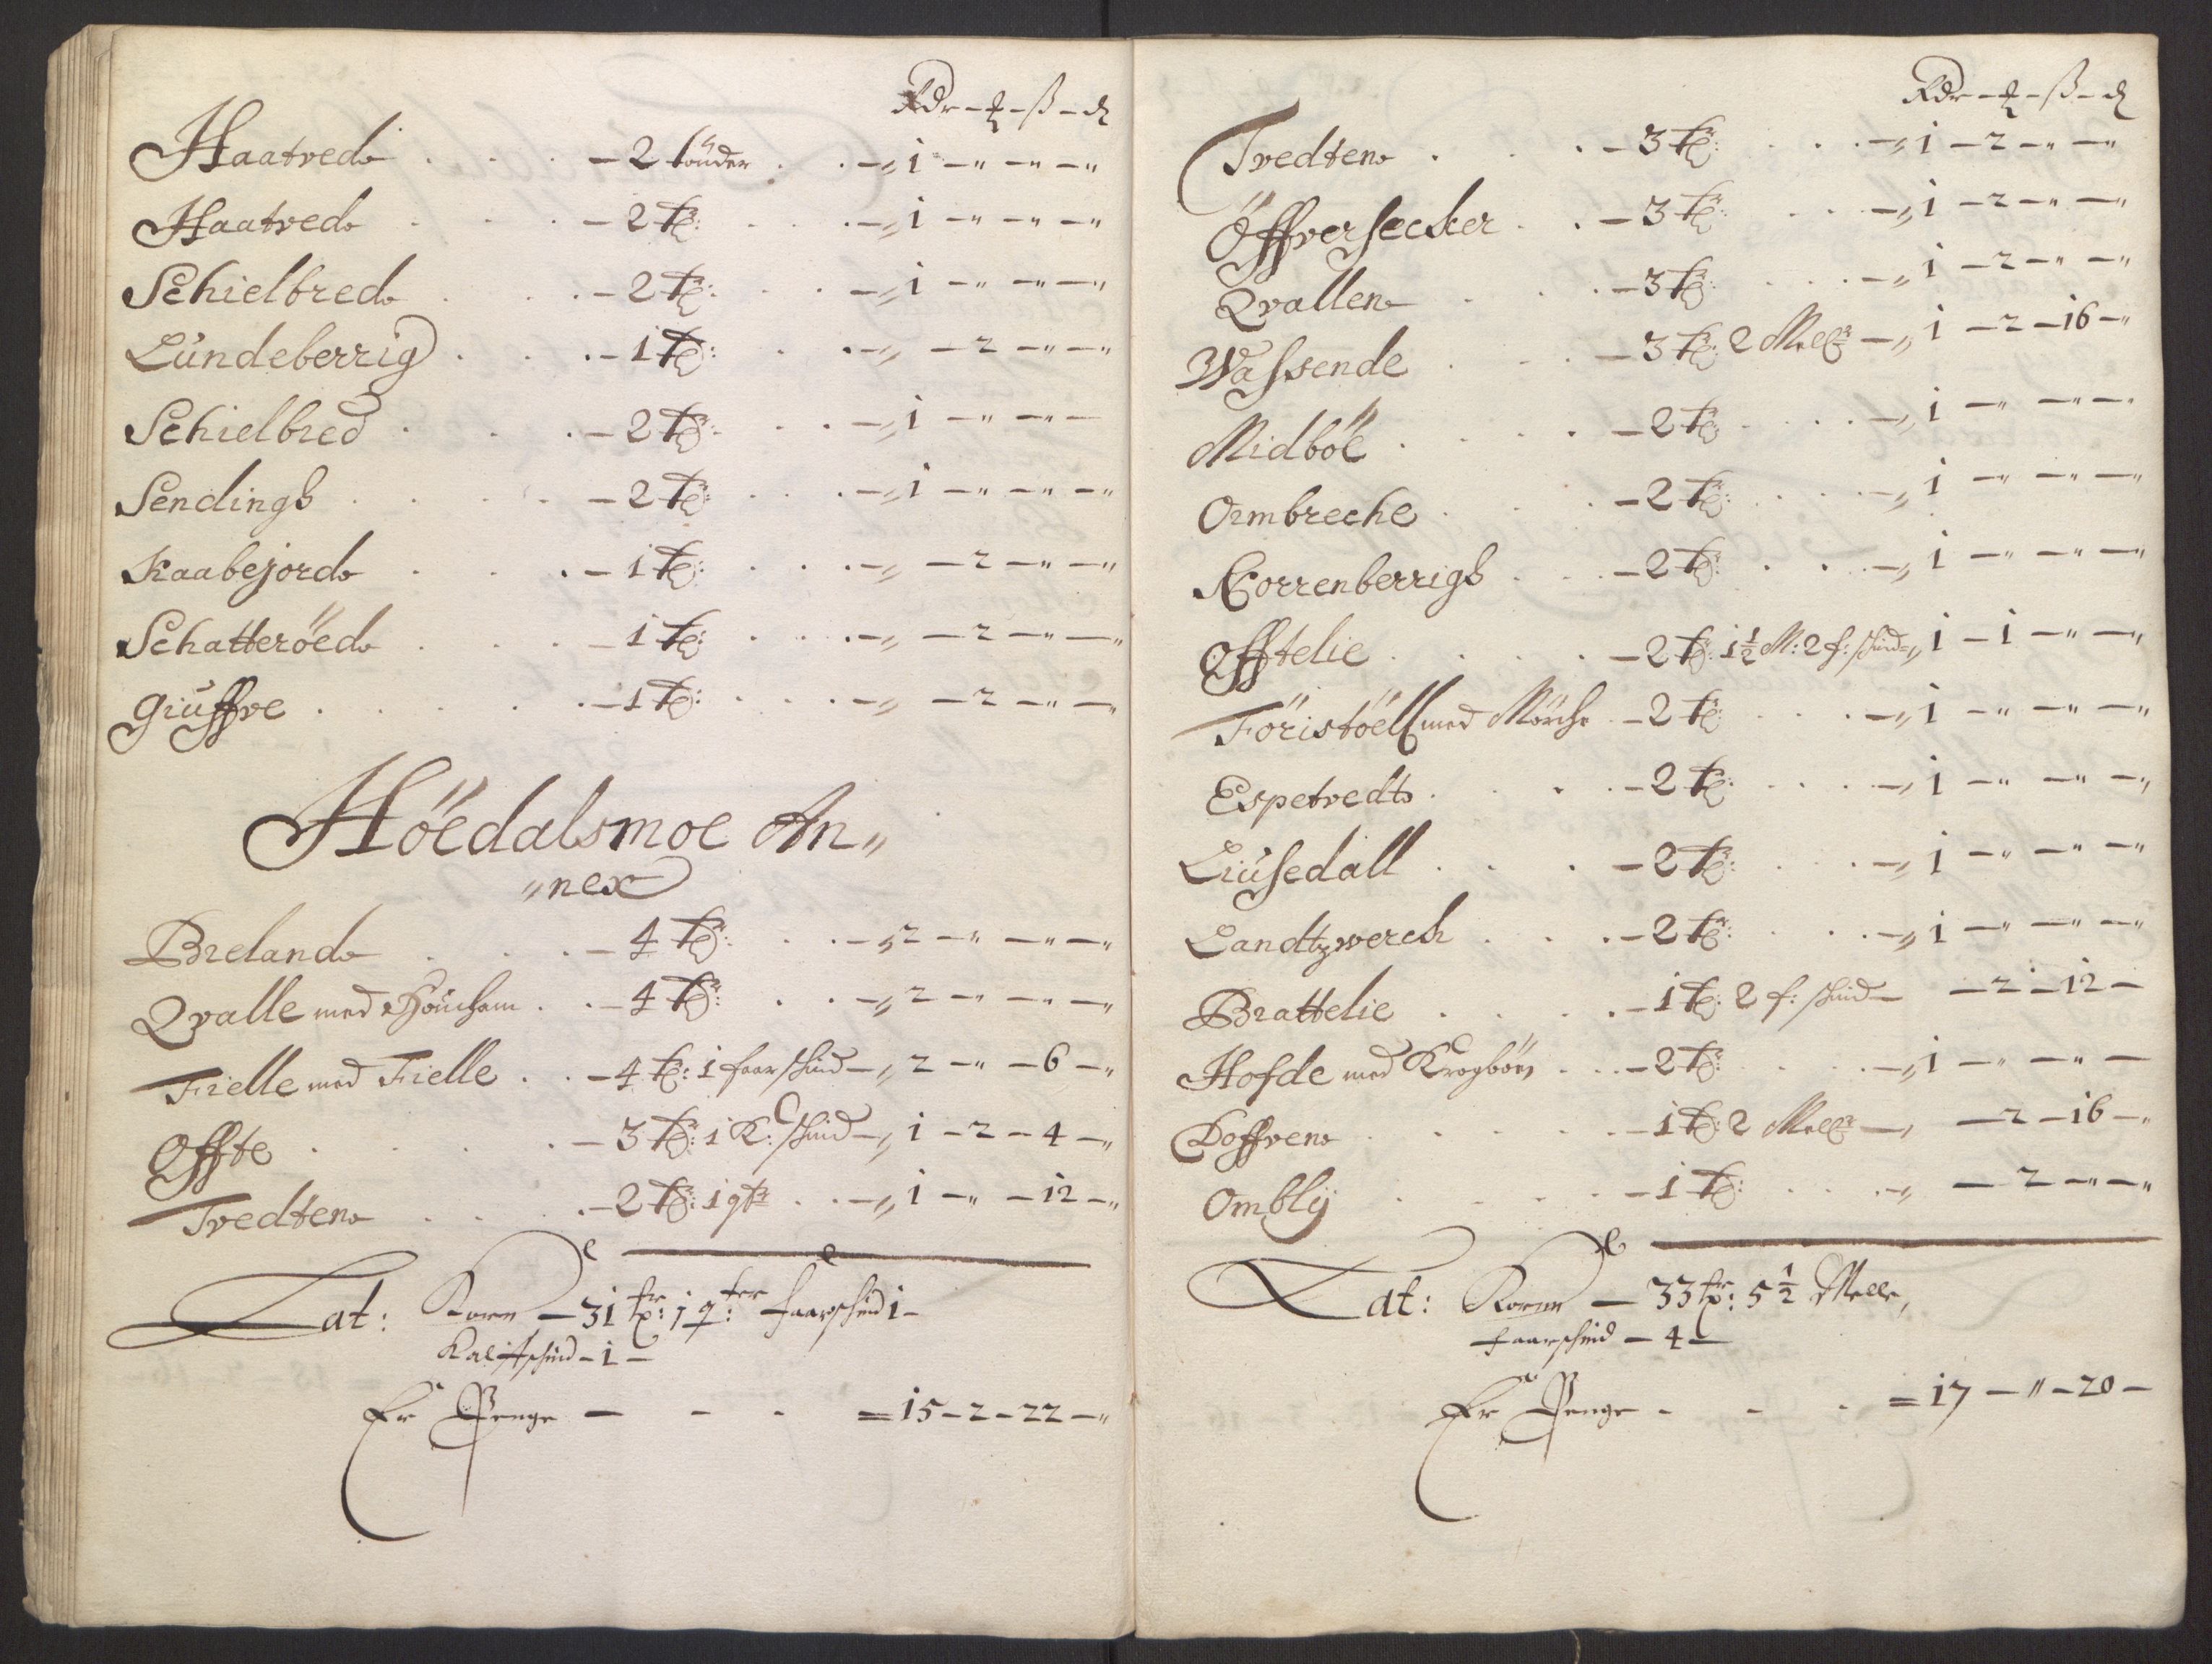 Rdr - ƶ - ß - d
Haatved - 2 tönder - 1 - " - " - "
Haatved - 2 tr: - 1 - " - " - "
Schielbred - 2 tr: - 1 - " - " - "
Lundeberrig - 1 tr: - " - 2 - " - "
Schielbred - 2 tr: - 1 - " - " -
Sendings - 2 tr: - 1 - " - " - "
Kaabejord - 1 tr: - " - 2 - " - "
Schatteröed - 1 tr: - " - 2 - " - "
Giuffve - 1 tr: - " - 2 - " - "
Höedalsmoe An„
„nex
Breland - 4 tr: - 2 - " - " - "
Qvalle med - 4 tr: - 2 - " - " - "
Fielle med Fielle - 4 tr: 1 faarschind - 2 - " - 6 - "
Offte - 3 tr: 1 K: schind - 1 - 2 - 4 - "
Tvedten - 2 tr: 1 qtr - 1 - " - 12 - "
Lat: Korn - 31 tr: 1 q:ter faarschind 1 -
Kalfschind - 1 -
Er Penge - - - = 15 - 2 - 22 - "
Rdr - ƶ - ß - d
Tvedten - 3 tr: - 1 - 2 - " - "
Öffversecker - 3 tr: - 1 - 2 - " - "
Qvallen - 3 tr: - 1 - 2 - " - "
Wassende - 3 tr: 2 Meller - 1 - 2 - 16 - "
Midböe - 2 tr: - 1 - " - " - "
Ormbreche - 2 tr: - 1 - " - " - "
Korrenberrigs - 2 tr: - 1 - " - " - "
Offtelie - 2 tr: 1½ M: 2 f: schind - 1 - 1 - " - "
Föristöell med Mörche - 2 tr: - 1 - " - " - "
Espetvedt - 2 tr: - 1 - " - " - "
Liusedall - 2 tr: - 1 - " - " - "
Landtzwerch - 2 tr: - 1 - " - " - "
Brattelie - 1 tr: 2 f: schind - - 2 - 12 -
Hofde med Krogböen - 2 tr: - 1 - " - " -
Doffven - 1 tr: 2 Meller - - 2 - 16 - "
Ombly - 1 tr: - " - 2 - " - "
Lat: Korn - 33 tr: 5½ Melle,
faarschind - 4 -
Er Penge - - - = 17 - " - 20 -